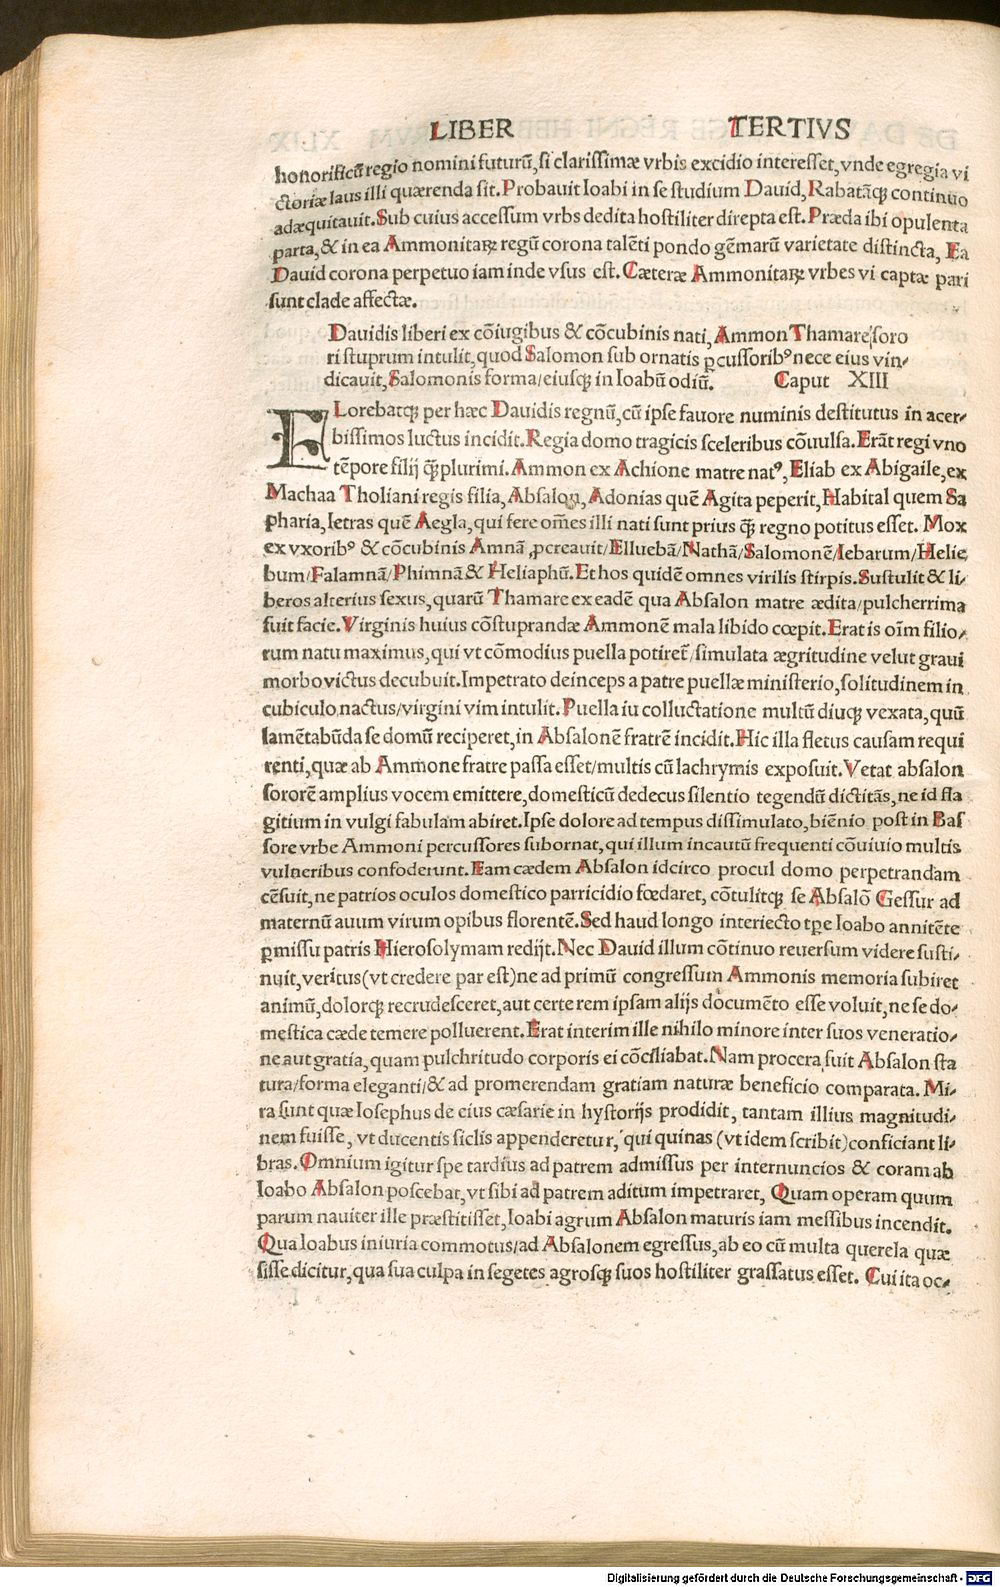 LIBER TERTIVS
honorificū regio nomini futurū, si clarissimæ vrbis excidio interesset, vnde egregia vi
ctoriæ laus illi quærenda sit. Probauit Ioabi in se studium Dauid, Rabatāqꝫ continuo
adæquitauit. Sub cuius accessum vrbs dedita hostiliter direpta est. Præda ibi opulenta
parta, & in ea Ammonitaꝝ regū corona talēti pondo gēmarū varietate distincta, Ea
Dauid corona perpetuo iam inde vsus est. Cæteræ Ammonitaꝝ vrbes vi captæ pari
sunt clade affectæ.
Dauidis liberi ex cōiugibus & cōcubinis nati, Ammon Thamare soro
ri stuprum intulit, quod Salomon sub ornatis ꝑcussoribꝰ nece eius vin-
dicauit, Salomonis forma/eiusqꝫ in Ioabū odiū. Caput XIII
FLorebatqꝫ per hæc Dauidis regnū, cū ipse fauore numinis destitutus in acer-
bissimos luctus incidit. Regia domo tragicis sceleribus cōuulsa. Erāt regi vno
tēpore filij qꝫ̄plurimi. Ammon ex Achione matre natꝰ, Eliab ex Abigaile, ex
Machaa Tholiani regis filia, Absalon, Adonias quē Agita peperit, Habital quem Sa
pharia, Ietras quē Aegla, qui fere om̄es illi nati sunt prius qꝫ̄ regno potitus esset. Mox
ex vxoribꝰ & cōcubinis Amnā ꝓcreauit/Elluebā/Nathā/Salomonē/Iebarum/Helie
bum/Falamnā/Phimnā & Heliaphū. Et hos quidē omnes virilis stirpis. Sustulit & li-
beros alterius sexus, quarū Thamare ex eadē qua Absalon matre ædita/pulcherrima
fuit facie. Virginis huius cōstuprandæ Ammonē mala libido cœpit. Erat is oīm filio-
rum natu maximus, qui vt cōmodius puella potiret̄/simulata ægritudine velut graui
morbo victus decubuit. Impetrato deinceps a patre puellæ ministerio, solitudinem in
cubiculo nactus/virgini vim intulit. Puella iu colluctatione multū diuqꝫ vexata, quū
lamētabūda se domū reciperet, in Absalonē fratrē incidit. Hic illa fletus causam requi
renti, quæ ab Ammone fratre passa esset/multis cū lachrymis exposuit. Vetat absalon
sororē amplius vocem emittere, domesticū dedecus silentio tegendū dictitās, ne id fla
gitium in vulgi fabulam abiret. Ipse dolore ad tempus dissimulato, biēnio post in Bas
sore vrbe Ammoni percussores subornat, qui illum incautū frequenti cōuiuio multis
vulneribus confoderunt. Eam cædem Absalon idcirco procul domo perpetrandam
cēsuit, ne patrios oculos domestico parricidio fœdaret, cōtulitqꝫ se Absalō Gessur ad
maternū auum virum opibus florentē. Sed haud longo interiecto tꝑe Ioabo annitēte
ꝑmissu patris Hierosolymam redijt. Nec Dauid illum cōtinuo reuersum videre susti-
nuit, veritus (vt credere par est) ne ad primū congressum Ammonis memoria subiret
animū, dolorqꝫ recrudesceret, aut certe rem ipsam alijs documēto esse voluit, ne se do-
mestica cæde temere polluerent. Erat interim ille nihilo minore inter suos veneratio-
ne aut gratia, quam pulchritudo corporis ei cōciliabat. Nam procera fuit Absalon sta
tura/forma eleganti/& ad promerendam gratiam naturæ beneficio comparata. Mi-
ra sunt quæ Iosephus de eius cæsarie in hystorijs prodidit, tantam illius magnitudi-
nem fuisse, vt ducentis siclis appenderetur, qui quinas (vt idem scribit) conficiant li-
bras. Omnium igitur spe tardius ad patrem admissus per internuncios & coram ab
Ioabo Absalon poscebat, vt sibi ad patrem aditum impetraret, Quam operam quum
parum nauiter ille præstitisset, Ioabi agrum Absalon maturis iam messibus incendit.
Qua Ioabus iniuria commotus/ad Absalonem egressus, ab eo cū multa querela quæ
sisse dicitur, qua sua culpa in segetes agrosqꝫ suos hostiliter grassatus esset. Cui ita oc-
Digitalisierung gefördert durch die Deutsche Forschungsgemeinschaft - DFG